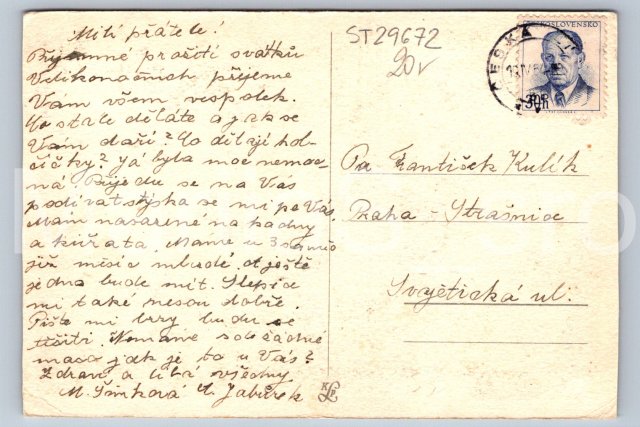 Milí přátelé!
Příjemné prožití svátků
Velikonočních přejeme
Vám všem vespolek.
Co stále děláte a jak se
Vám daří? Co dělají hol-
čičky? Já byla moc nemoc-
ná. Přijedu se na Vás
podívat stýska se mi po Vás.
Mám nasazené na kachny
a kuřata. Máme u 3 samic
již měsíc mladé, ještě
jedna bude mít. Slepice
mi také nesou dobře.
Pište mi brzy budu se
těšiti. Nemáme sobě žádné
maso jak je to u Vás?
Zdraví a líbá všechny
M. Šimková Jabůrek
ST29672
20v
ČESKÁ
ČESKOSLOVENSKO
Pan František Kulík
Praha - Strašnice
Svojetická ul.